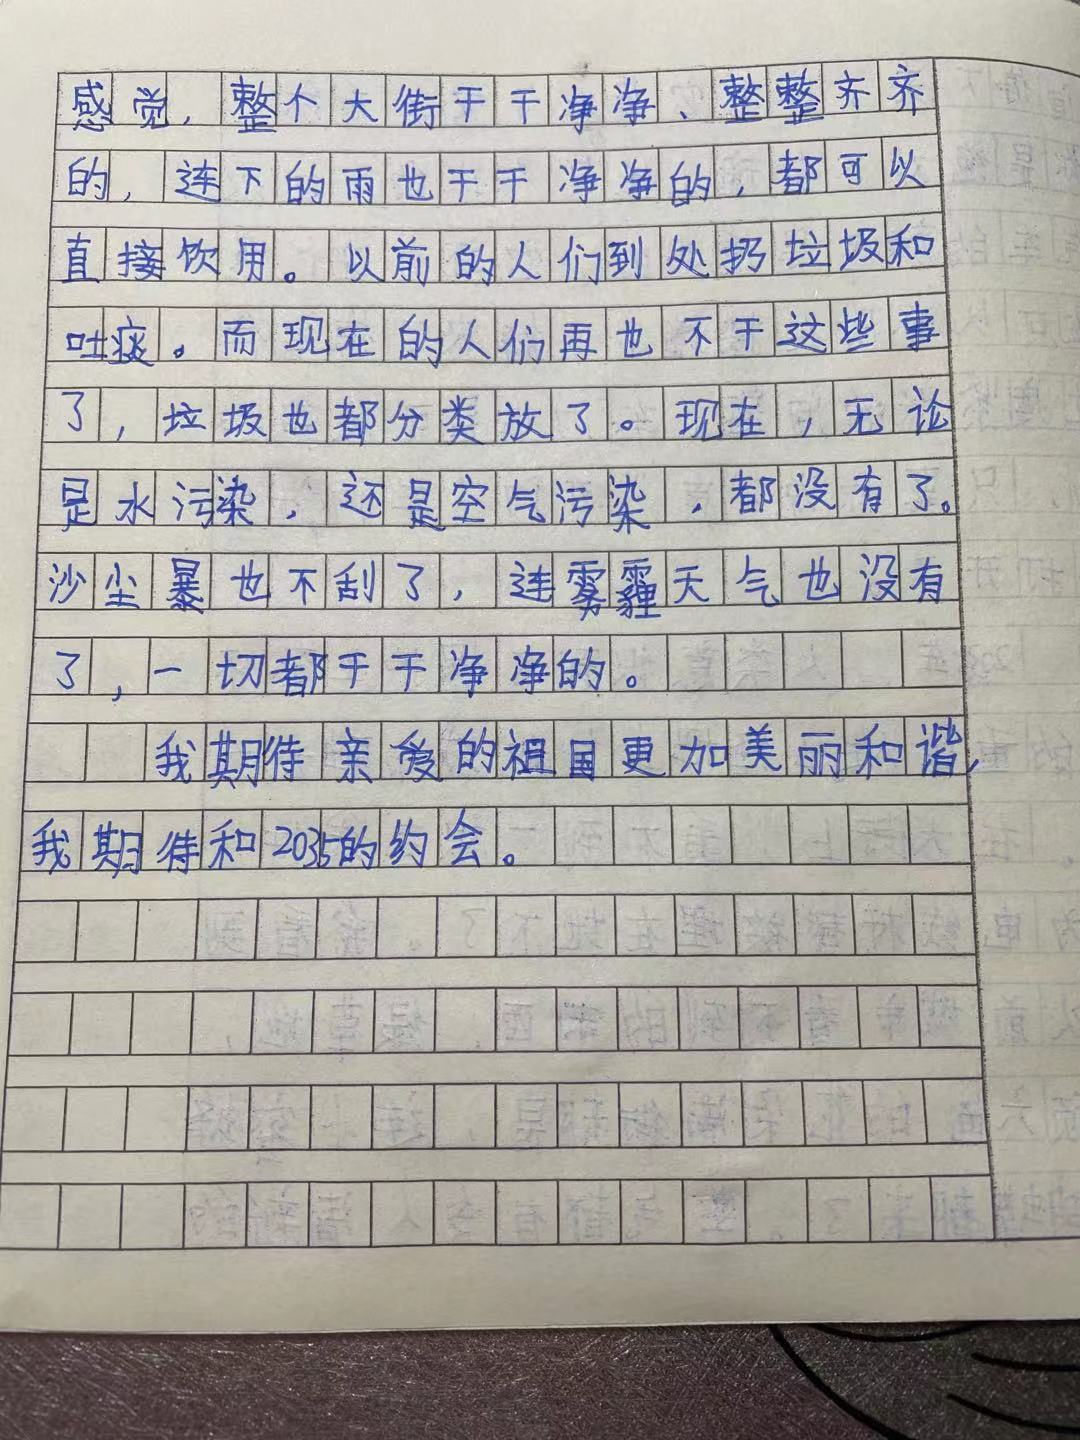 感觉，整个大街干干净净、整整齐齐
的，连下的雨也干干净净的，都可以
直接饮用。以前的人们到处扔垃圾和
吐痰。而现在的人们再也不干这些事
了，垃圾也都分类放了。现在，无论
是水污染，还是空气污染，都没有了。
沙尘暴也不刮了，连雾霾天气也没有
了，一切都干干净净的。
我期待亲爱的祖国更加美丽和谐，
我期待和2035的约会。